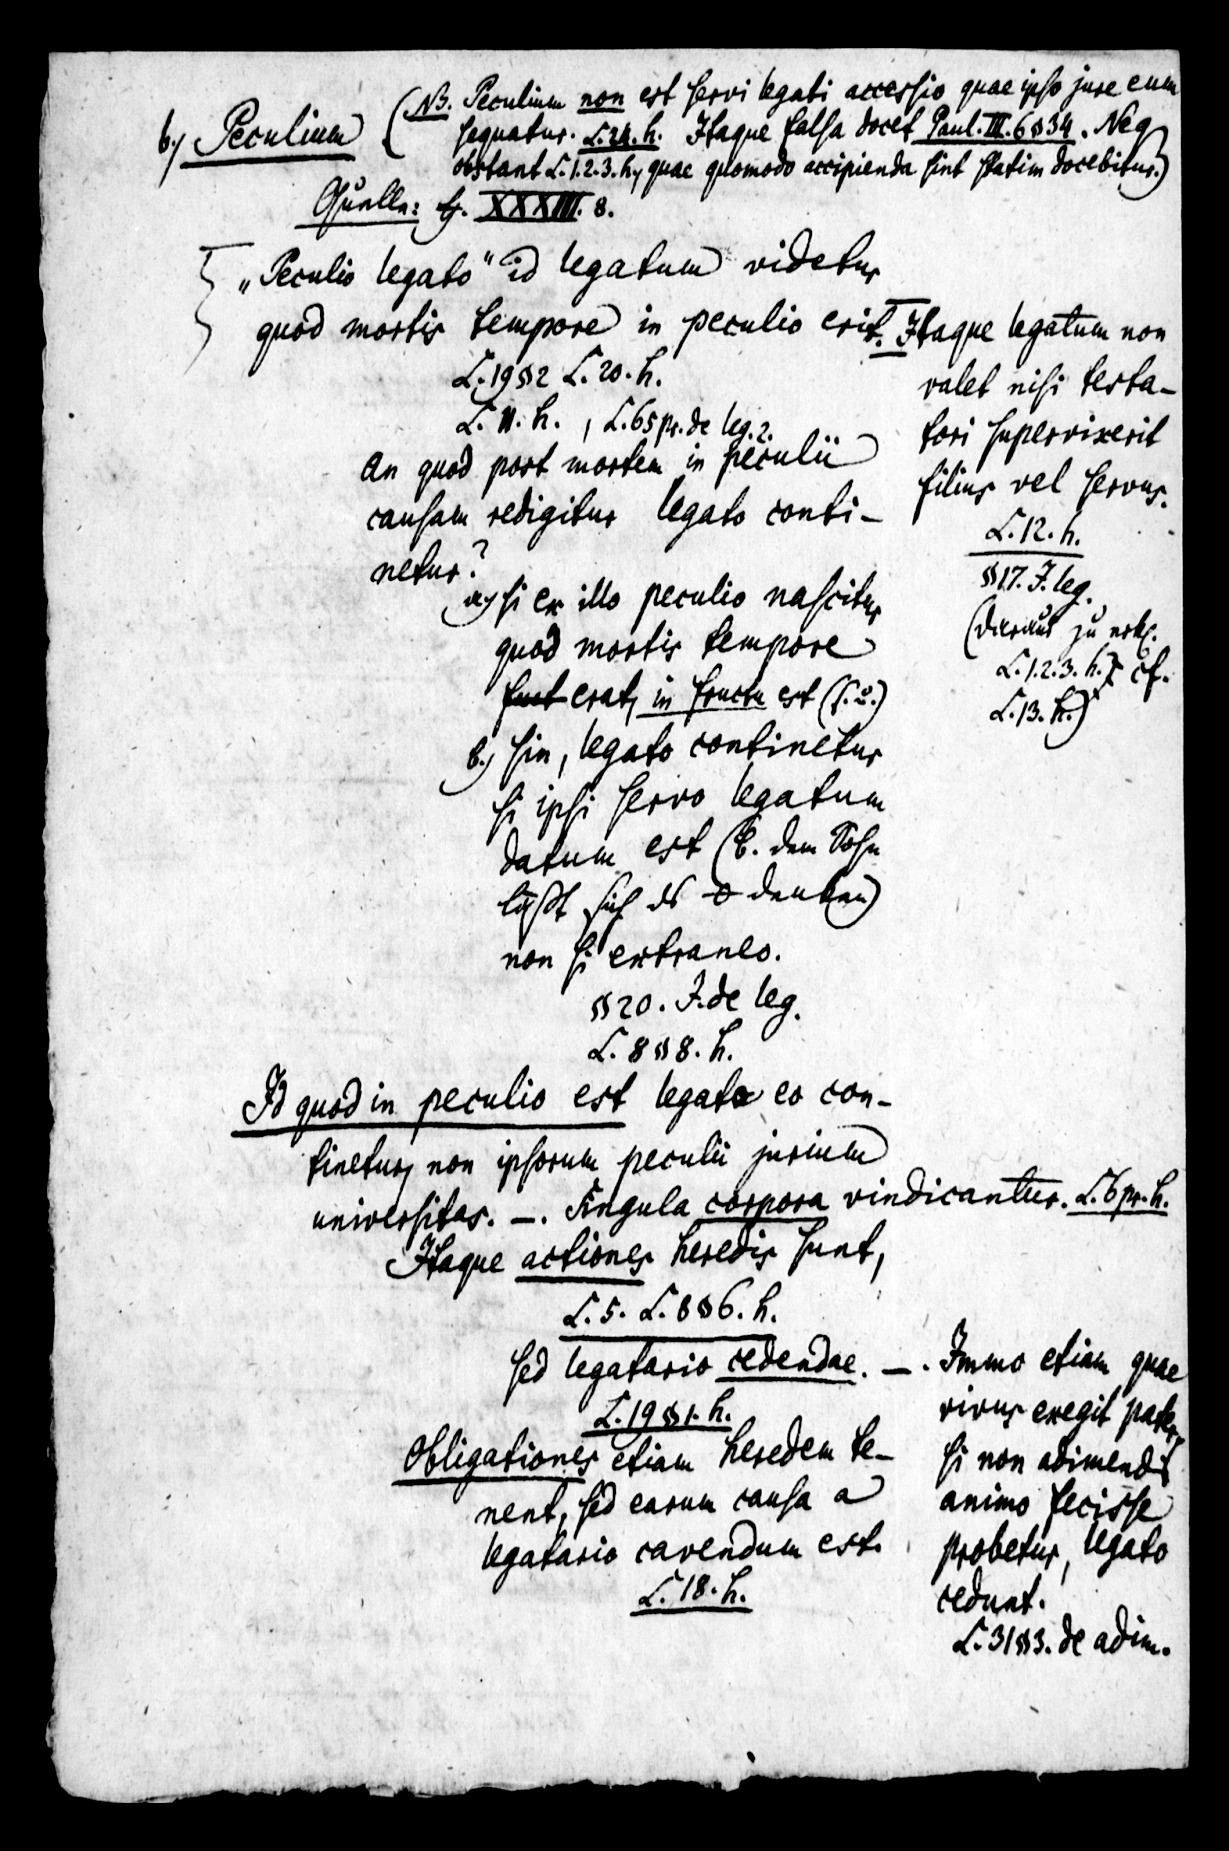 b.) Peculium (NB. Peculium non est servi legati accessio quae ipso jure eum
sequatur. L. 24. h. Itaque falsa docet Paul. III. 6 § 34. Neq
obstant L. 1. 2. 3. h., quae quomodo accipienda sint statim docebitur.)
Quelle: tj. XXXIII. 8.
„Peculio legato“ id legatum videtur
quod mortis tempore in peculio erit.
L. 19 § 2 L. 20. h.
L. 11. h., L. 65 pr. de leg. 2.
Itaque legatum non
valet nisi testa-
tori supervixerit
filius vel servus.
L. 12. h.
§ 17. J. leg.
(daraus zu erkl.
L. 1. 2. 3. h.) cf.
L. 13. h.)
an quod post mortem in peculii
causam redigitur legato conti-
netur?
α.) si ex illo peculio nascitur
quod mortis tempore
fuit erat, in fructu est (s. o.)
β.) sin, legato continetur
si ipsi servo legatum
datum est (b. dem Sohn
läßt sich ds denken)
non si extraneo.
§ 20. J. de leg.
L. 8 § 8. h.
Id quod in peculio est legato eo con-
tinetur, non ipsorum peculii jurium
universitas. —. Singula corpora vindicantur. L. 6 pr. h.
Itaque actiones heredis sunt,
L. 5. L. 8 § 6. h.
sed legatario cedendae. —.
L. 19 § 1. h.
Immo etiam quae
vivus exegit pater,
si non adimendi
animo fecisse
probetur, legato
cedunt.
L. 31 § 3. de adim.
Obligationes etiam heredem te-
nent, sed earum causa a
legatario cavendum est.
L. 18. h.